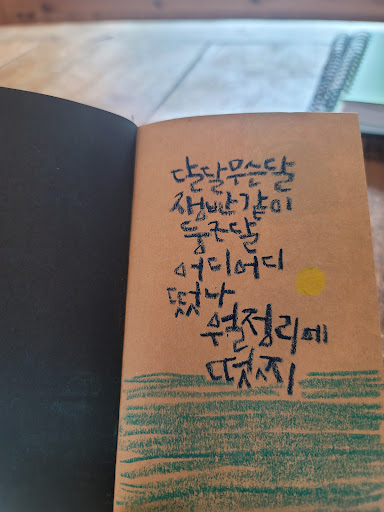 달달무슨달
쟁반같이
둥근달
어디어디
떴나
월정리에
다컸찌